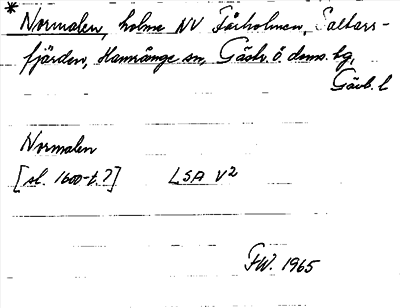 * Normalen, holme NV Fårholmen, Saltars-
fjärden, Hamrånge sn, Gästr. ö. doms. hg,
Gävb. l
Normalen
[sl. 1600-t.?] LSA V2
FW. 1965